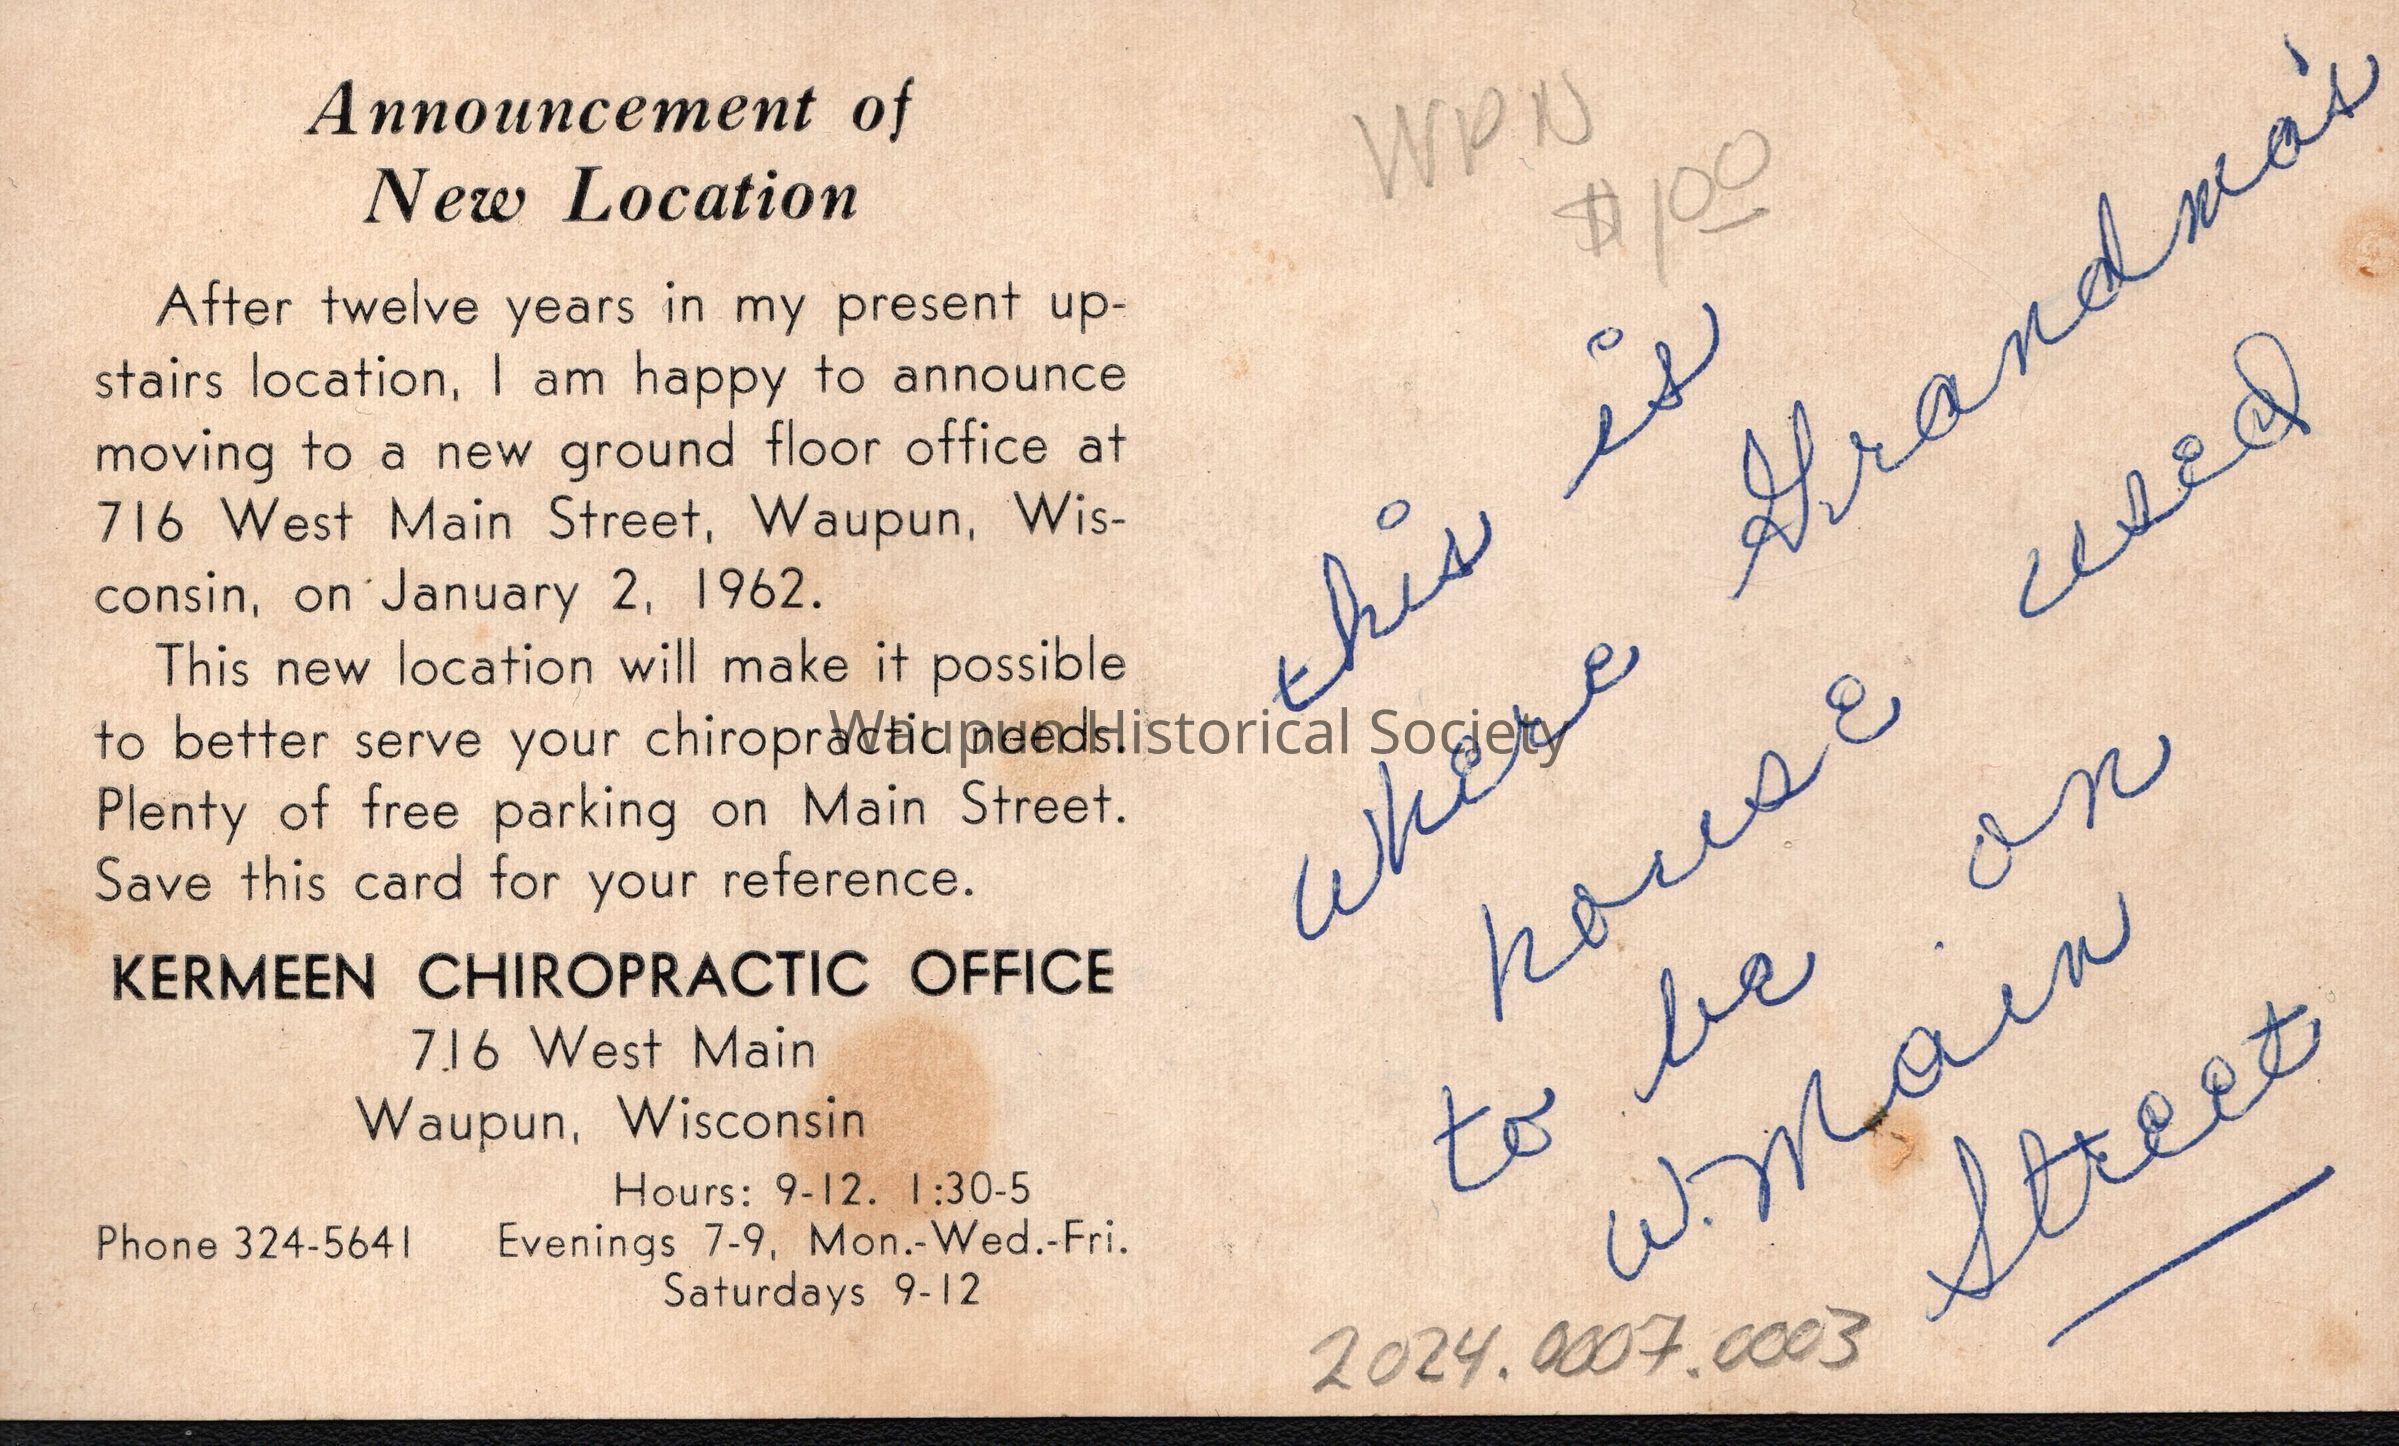 Announcement of
New Location
After twelve years in my present up-
stairs location, I am happy to announce
moving to a new ground floor office at
716 West Main Street, Waupun, Wis-
consin, on January 2, 1962.
This new location will make it possible
to better serve your chiropractic needs.
Plenty of free parking on Main Street.
Save this card for your reference.
KERMEEN CHIROPRACTIC OFFICE
716 West Main
Waupun, Wisconsin
Hours: 9-12. 1:30-5
Phone 324-5641 Evenings 7-9, Mon.-Wed.-Fri.
Saturdays 9-12
WPN
$1.00
this is
where Grandma's
house used
to be on
W. Main
Street
2024.0007.0003
Waupun Historical Society